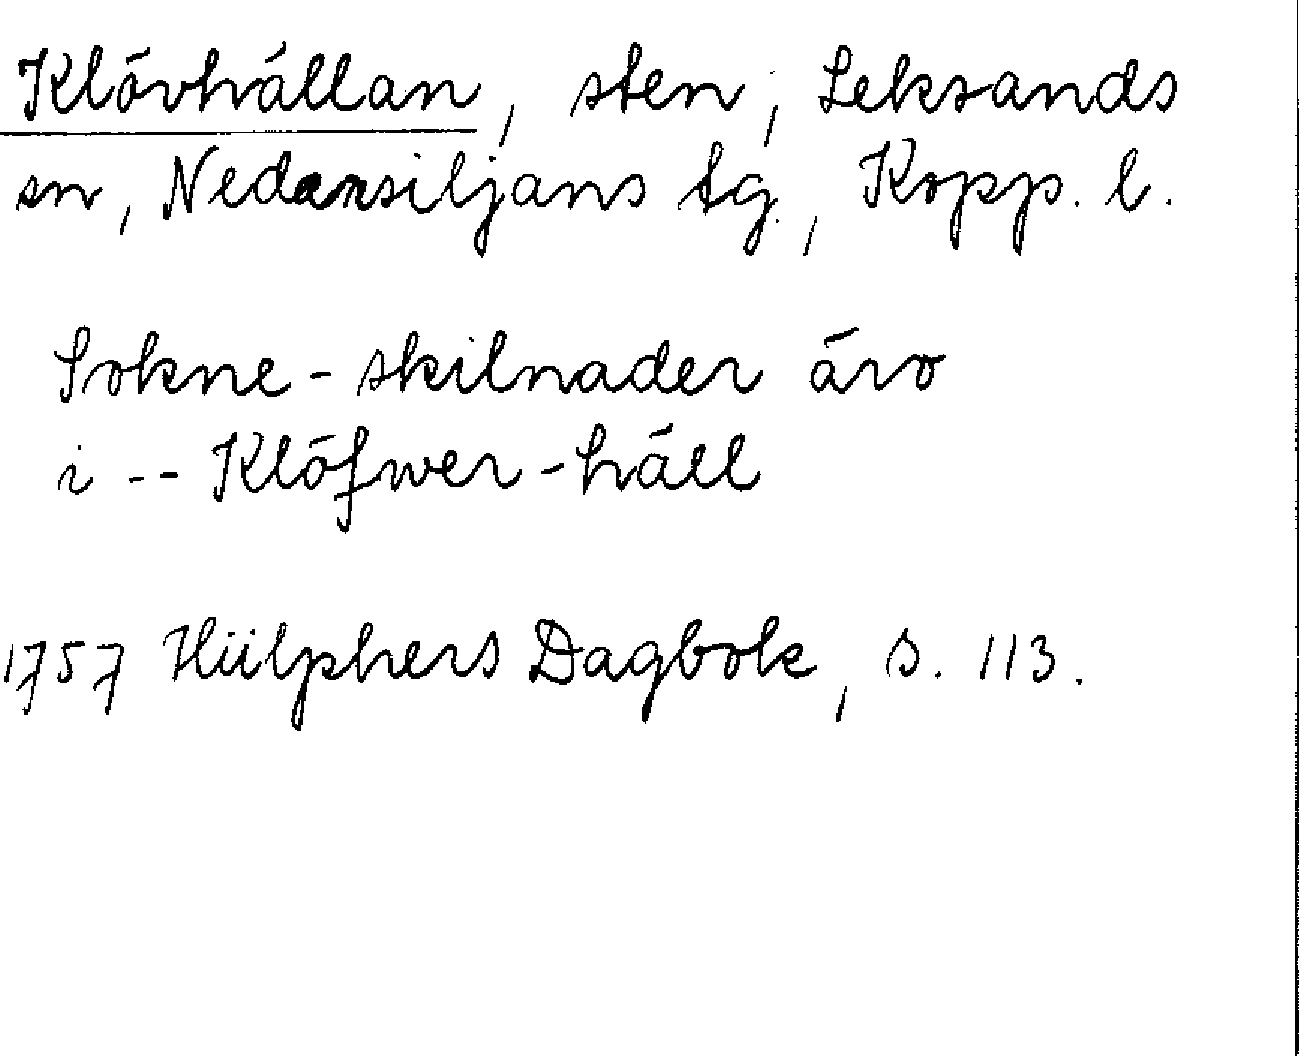 Klövhällan, sten, Leksands
sn, Nedansiljans tg., Kopp. l.
Sokne-skilnader äro
i -- Klöfwer-häll
1757 Hülphers Dagbok, s. 113.